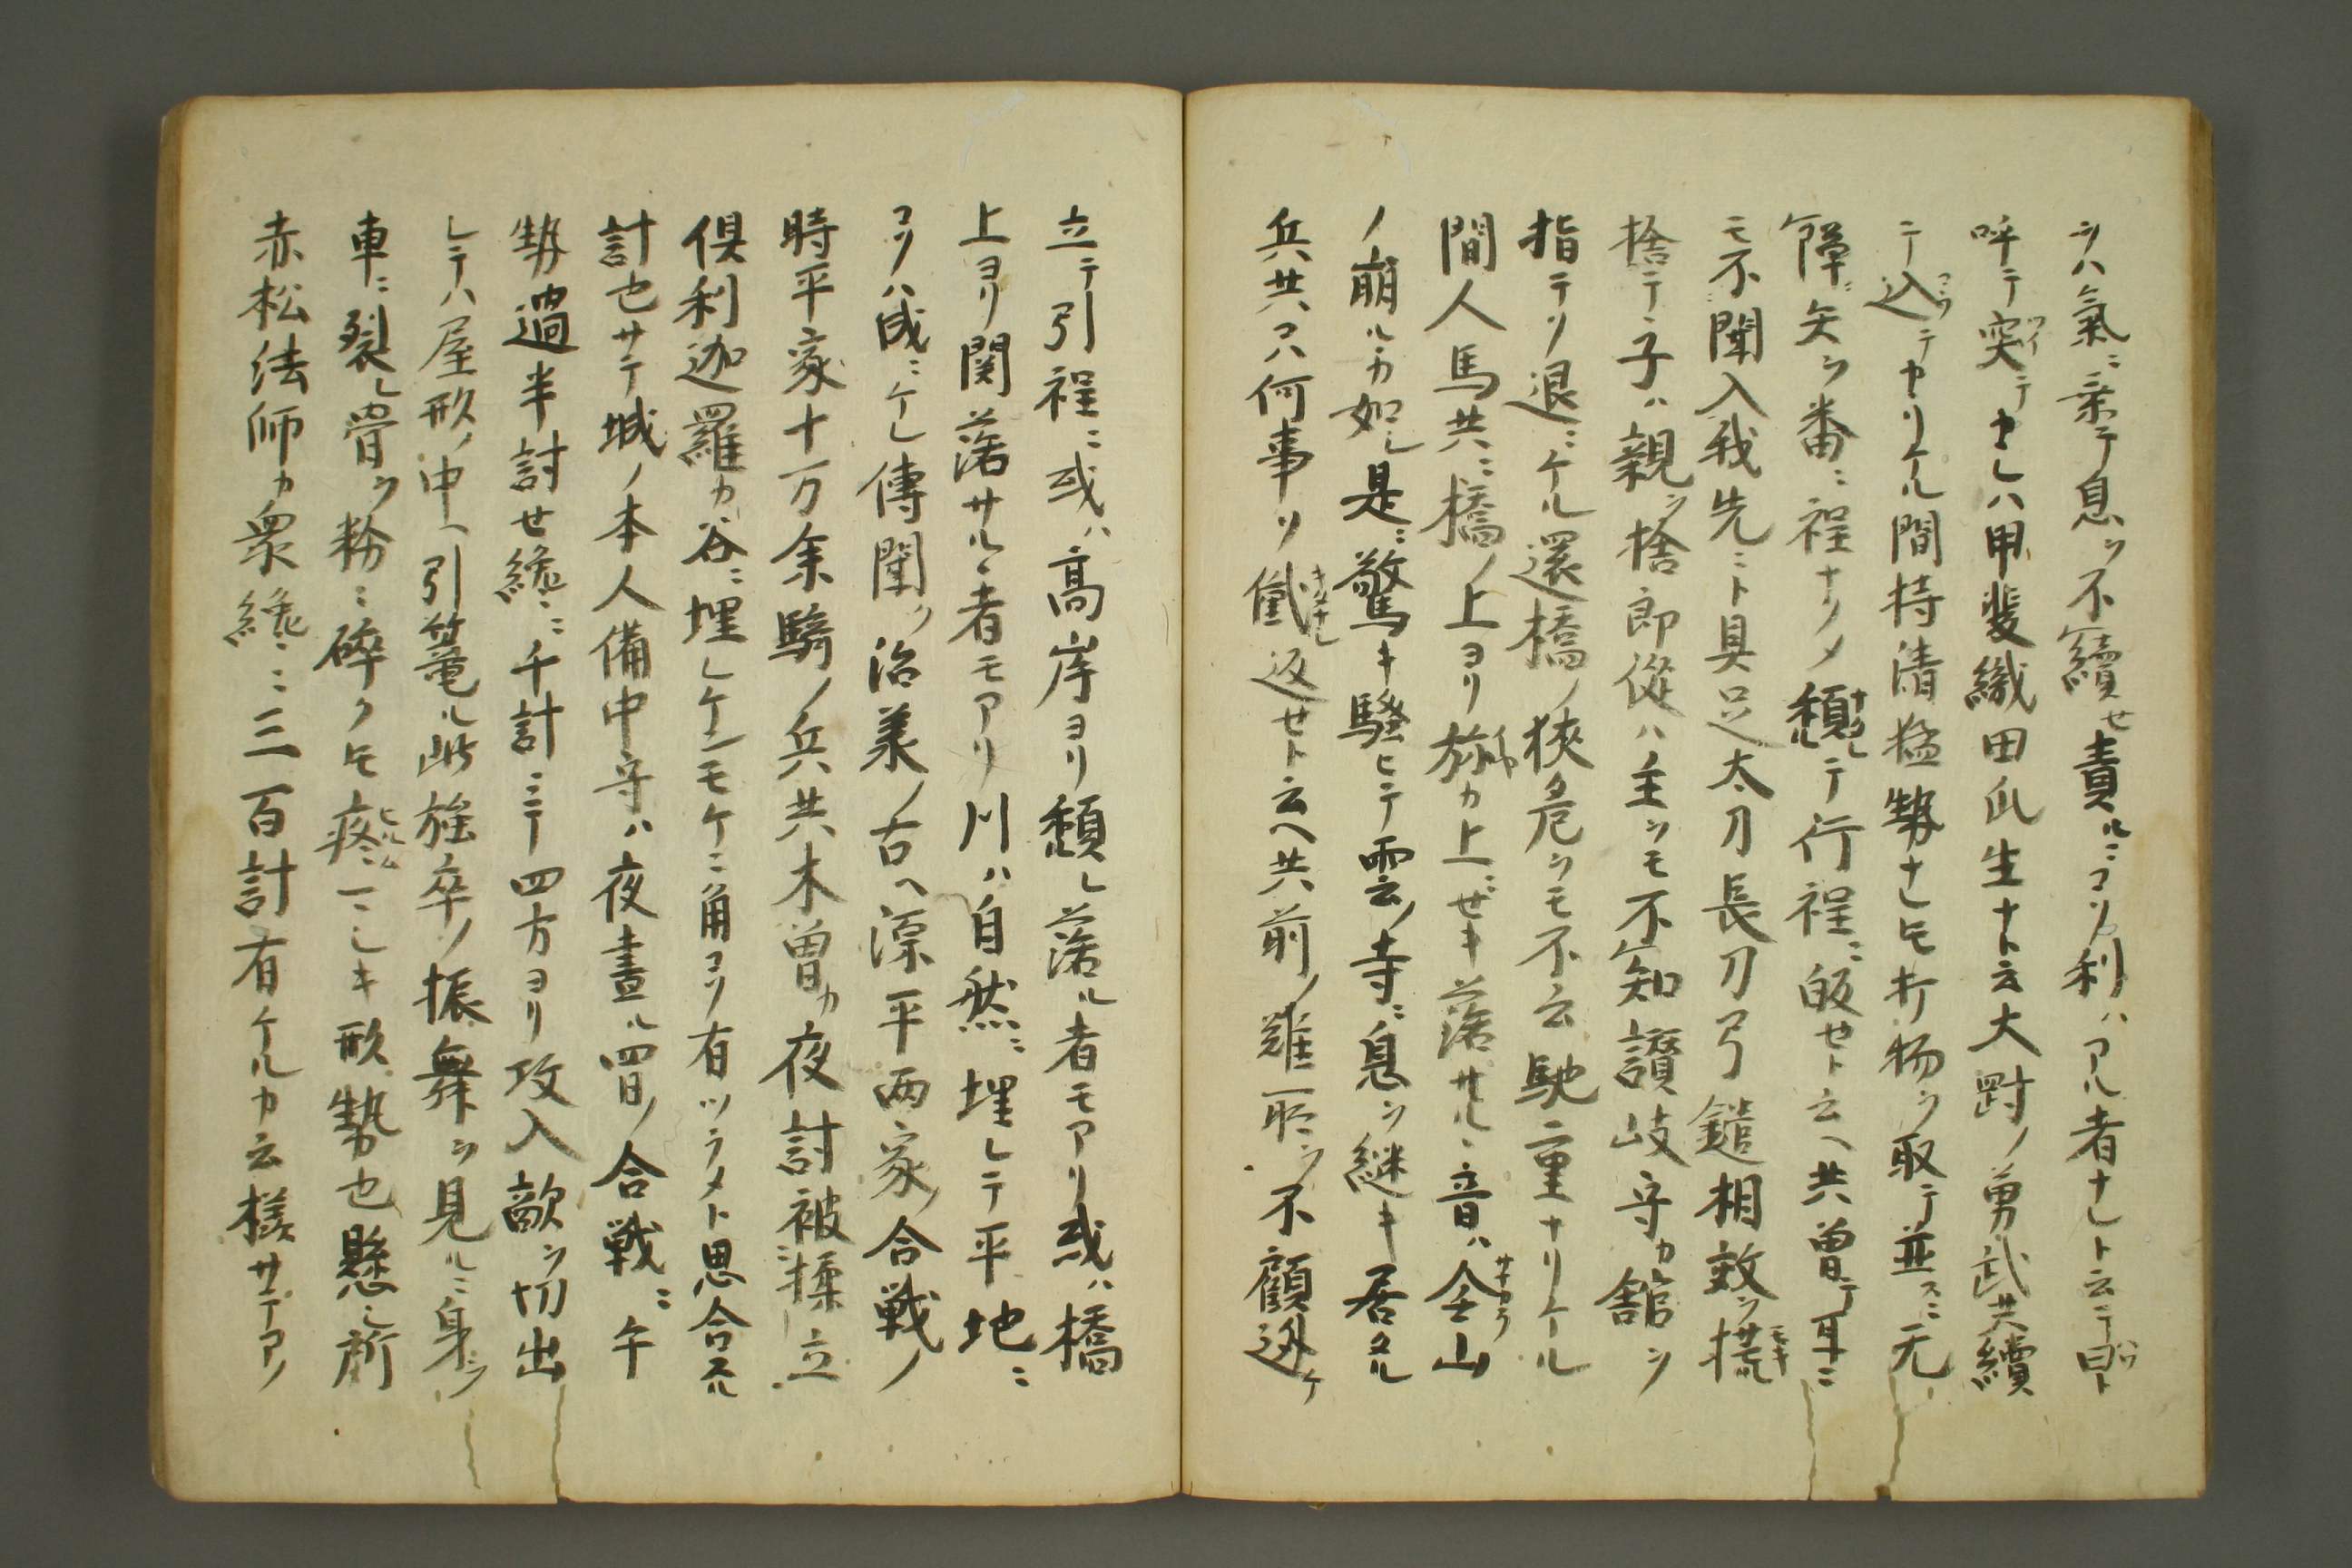 ヲハ氣ニ乗テ息ヲ不續せ責ルニコソ利ハアル者ナレト云テ曰ト
呼テ突テカヽレハ甲斐織田瓜生ナト云大野ノ勇武共續
テ込テカヽリケル間持清猛勢ナレ𪜈打物ヲ取テ並スニ无
彈矢ヲ番ニ程ナソメ頽レテ行程ニ皈セト云ヘ共曽テ耳ニ
モ不聞入我先ニト具足太刀長刀弓鑓相散ヲ
捨テ子ハ親ヲ捨郎従ハ主ヲモ不知讃岐守カ舘ヲ
指テソ退ニケル還橋ノ狹危ヲモ不云馳重ナリケル
間人馬共ニ橋ノ上ヨリ弥カ上ニせキ落サルヽ音ハ全山
ノ崩ルカ如シ是ニ驚キ騒ヒテ雲ノ寺ニ息ヲ継キ居タル
兵共コハ何事ソ返せト云ヘ共前ノ難所ヲ不顧迯ケ
立テ引程ニ或ハ高岸ヨリ頽レ落ル者モアリ或ハ橋
上ヨリ関落サルヽ者モアリ川ハ自然ニ埋レテ平地ニ
コソハ成ニケレ傳聞ク治美ノ古ヘ源平両家ノ合戦ノ
時平家十万余騎ノ兵共木曽カ夜討被揉立
倶利迦羅カ谷ニ埋レケンモケニ角コソ有ツラメト思合スル
計也サテ城ノ本人備中守ハ夜晝四日ノ合戦ニ午
勢過半討せ纔ニ千計ニテ四方ヨリ攻入敵ヲ切出
シテハ屋形ノ中ヘ引篭ル此旌卒ノ振舞ヲ見ルニ身ヲ
車ニ裂レ骨ヲ粉ニ碎ク𪜈疼ムヘシキ形勢也懸シ所
赤松法師カ衆纔ニ三百計有ケルカ云様サテアノ